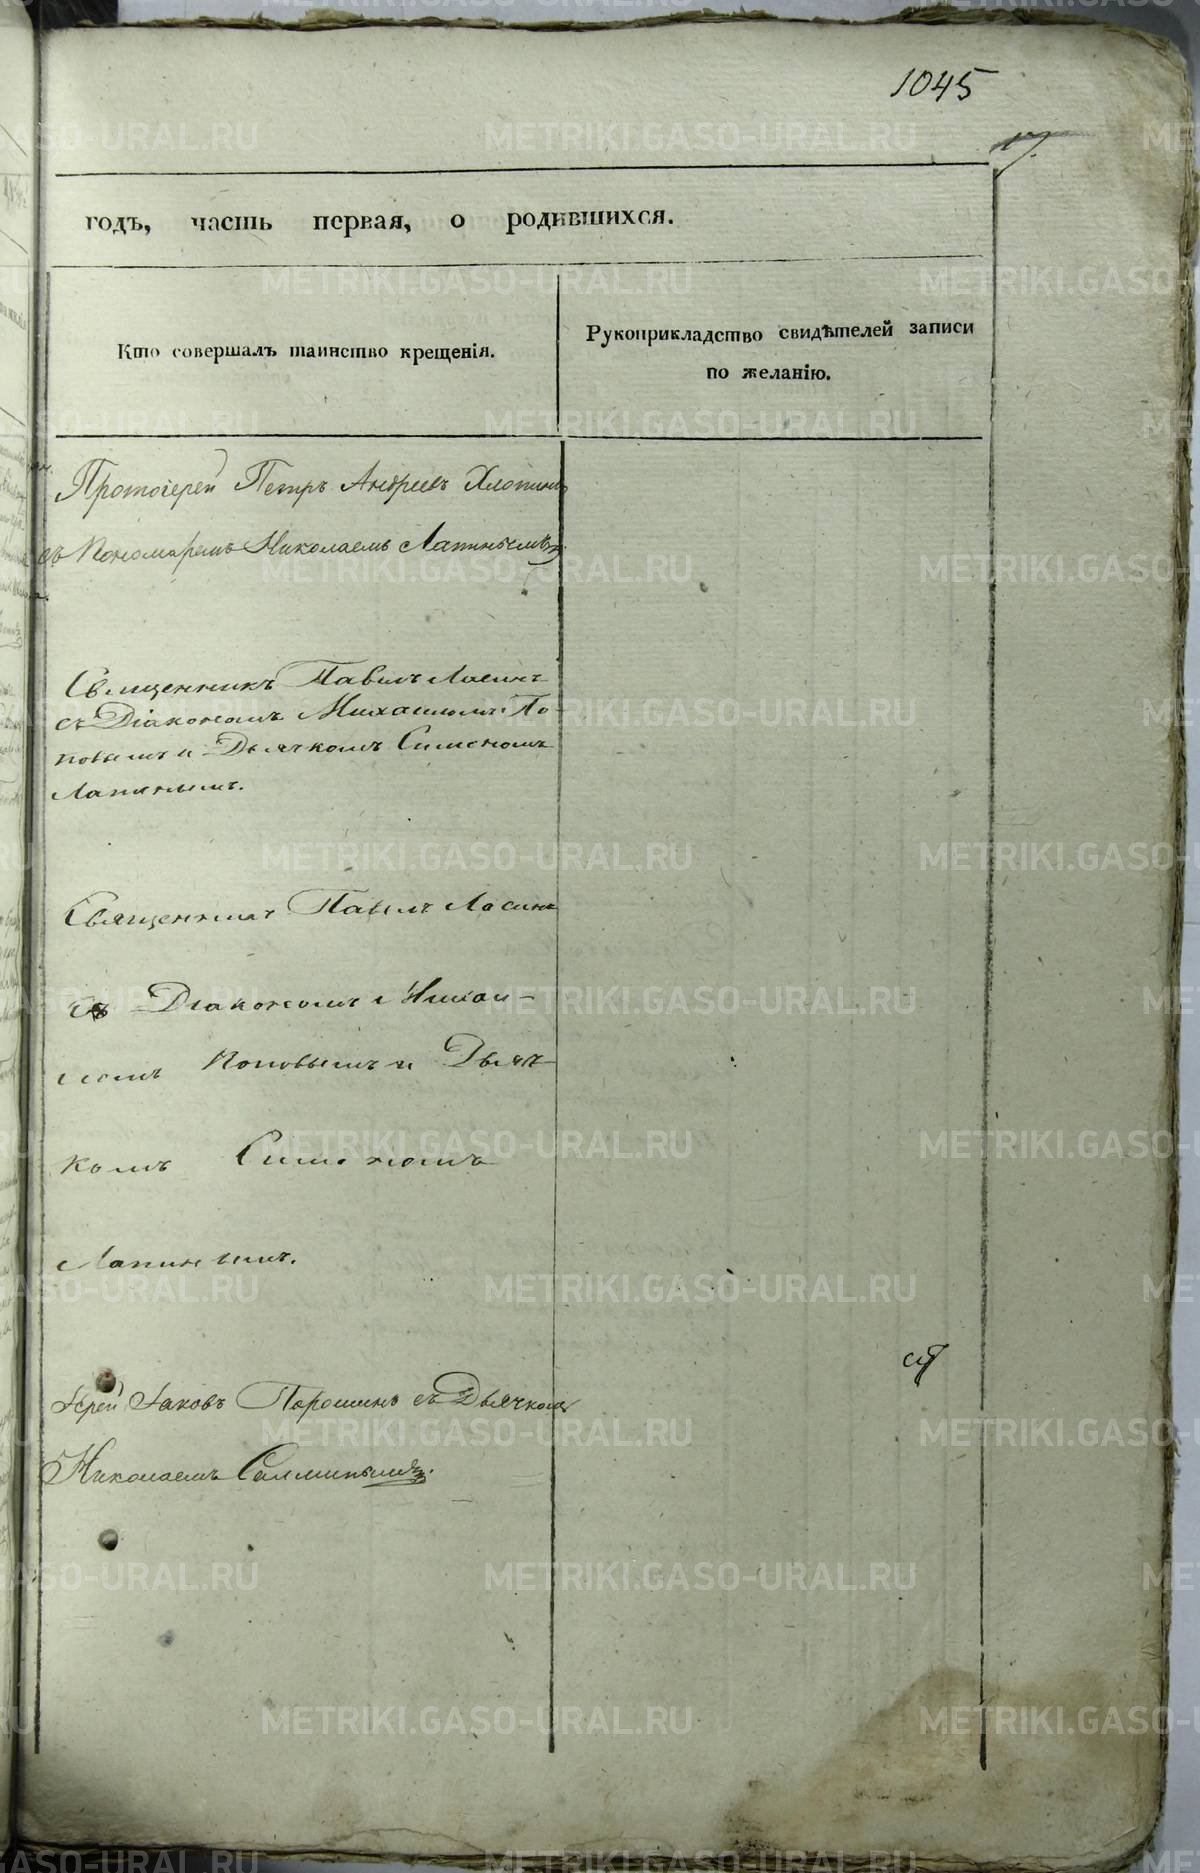 1045
17.
годъ, часть первая, о родившихся.
Кто совершалъ таинство крещенія.
Рукоприкладство свидѣтелей записи
по желанію.
Протоіерей Петръ Андреевъ Хлопинъ
съ Пономаремъ Николаемъ Лапинымъ
Священникъ Павелъ Ласинъ
съ Діакономъ Михаиломъ По-
повымъ и Дьячкомъ Симеономъ
Лапинымъ.
Священникъ Павелъ Ласинъ
съ Діакономъ Михаи-
ломъ Поповымъ и Дьяч-
комъ Симеономъ
Лапинымъ.
Іерей Іаковъ Порошинъ съ Дьячкомъ
Николаемъ
METRIKI.GASO-URAL.RU